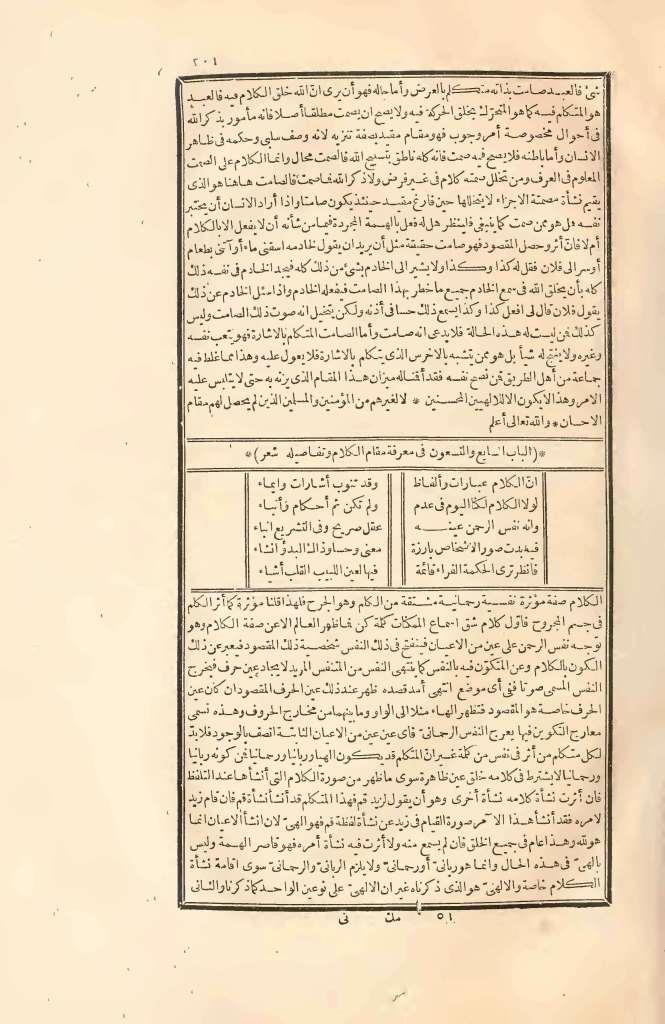 ٢٠١
شئ فالعبد صامت بذاته متكلم بالعرض وأما حاله فهو أن يرى انّ الله خلق الكلام فيه فالعبد
هو المتكلم فيه كما هو المتحرّك بخلق الحركة فيه ولا يصح ان يصمت مطلقا أصلا فانه مأمور بذكر الله
فى أحوال مخصوصة أمر وجوب فهو مقام مقيد بصفة تنزيه لانه وصف سلبى وحكمه فى ظاهر
الانسان وأما باطنه فلا يصح فيه صمت فانه كله ناطق بتسبيح الله فالصمت محال وانما الكلام على الصمت
المعلوم فى العرف ومن تخلل صمته كلام فى غير فرض ولا ذكر الله فما صمت فالصامت هاهنا هو الذى
يقيم نشأة مصمتة الاجزاء لا يتخللها حين فارغ مقيد حينئذ يكون صامتا واذا أراد الانسان أن يختبر
نفسه هل هو ممن صمت كما ينبغى فلينظر هل له فعل بالهمة المجردة فيما من شأنه أن لا يفعل الا بالكلام
أم لا فان أثر وحصل المقصود فهو صامت حقيقة مثل أن يريد ان يقول لخادمه اسقنى ماء أو آتنى بطعام
أو سر الى فلان فقل له كذا وكذا ولا يشير الى الخادم بشئ من ذلك كله فيجد الخادم فى نفسه ذلك
كله بأن يخلق الله فى سمع الخادم جميع ما خطر بهذا الصامت فيفعله الخادم واذا سئل الخادم عن ذلك
يقول فلان قال لى افعل كذا وكذا يسمع ذلك حسا فى أذنه ولكن يتخيل انه صوت ذلك الصامت وليس
كذلك فمن ليست له هذه الحالة فلا يدعى انه صامت وأما الصامت المتكلم بالاشارة فهو يتعب نفسه
وغيره ولا ينتج له شيأ بل هو ممن يتشبه بالاخرس الذى يتكلم بالاشارة فلا يعول عليه وهذا مما غلط فيه
جماعة من أهل الطريق فمن نصح نفسه فقد أقمناله ميزان هذا المقام الذى يزنه به حتى لا يلتبس عليه
الامر وهذا لا يكون الا للالهيين المحسنين * لا لغيرهم من المؤمنين والمسلمين الذين لم يحصل لهم مقام
الاحسان * والله تعالى أعلم
* (الباب السابع والتسعون فى معرفة مقام الكلام وتفاصيله شعر) *
انّ الكلام عبارات وألفاظ وقد تنوب أشارات وايماء
لولا الكلام لكنا اليوم فى عدم ولم تكن ثم أحكام وأنباء
وانه نفس الرحمن عينه عقل صريح وفى التشريع انباء
فيه بدت صور الاشخاص بارزة معنى وحسا وذاك البدؤ انشاء
فانظر ترى الحكمة الغراء قائمة فيها لعين اللبيب القلب أشياء
الكلام صفة مؤثرة نفسية رحمانية مشتقة من الكلم وهو الجرح فلهذا قلنا مؤثرة كما أثر الكلم
فى جسم المجروح فاول كلام شق اسماع الممكنات كلمة كن فما ظهر العالم الا عن صفة الكلام وهو
توجه نفس الرحمن على عين من الاعيان فينفتح فى ذلك النفس شخصية ذلك المقصود فيعبر عن ذلك
الكون بالكلام وعن المتكوّن فيه بالنفس كما ينتهى النفس من المتنفس المريد لا يجاد عين حرف فيخرج
النفس المسمى صوتا ففى أى موضع انتهى أمد قصده ظهر عند ذلك عين الحرف المقصود ان كان عين
الحرف خاصة هو المقصود فتظهر الهاء مثلا الى الواو وما بينهما من مخارج الحروف وهذه تسمى
معارج التكوين فيها يعرج النفس الرحمانىّ فاى عين عين من الاعيان الثابتة اتصف بالوجود فلا بدّ
لكل متكلم من أثر فى نفس من كلمة غير انّ المتكلم قد يكون الهيا وربانيا ورحمانيا فمن كونه ربانيا
ورحمانيا لا يشترط فى كلامه خلق عين ظاهرة سوى ما ظهر من صورة الكلام التى أنشأها عند التلفظ
فان أثرت نشأة كلامه نشأة أخرى وهو أن يقول لزيد قم فهذا المتكلم قد أنشأ نشأة قم فان قام زيد
لامره فقد أنشأ هذا الآمر صورة القيام فى زيد عن نشأة لفظة قم فهو الهىّ لان انشاء الاعيان انما
هو لله وهذا عام فى جميع الخلق فان لم يسمع منه ولا أثرت فيه نشأة أمره فهو قاصر الهمة وليس
بالهىّ فى هذه الحال وانما هو ربانىّ أو رحمانىّ ولا يلزم الربانىّ والرحمانىّ سوى اقامة نشأة
الكلام خاصة والالهىّ هو الذى ذكرناه غير ان الالهىّ على نوعين الواحد كما ذكرنا والثانى
٥١ مك نى